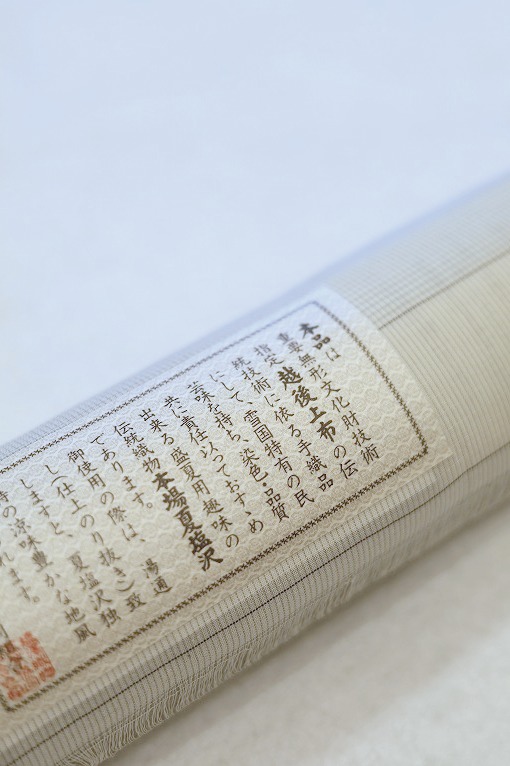 本品は重要無形文化財技術
指定越後上布の伝
統技術に依る手織品
にして、雪国特有の民
芸味を持ち、染色、品質
共に責任以っておすゝめ
出来る盛夏用趣味の
伝統織物本場夏塩沢
であります。
御使用の際は、湯通
し(仕上のり抜き)致
しますと、夏塩沢独
特の涼味豊かな地風
れます。